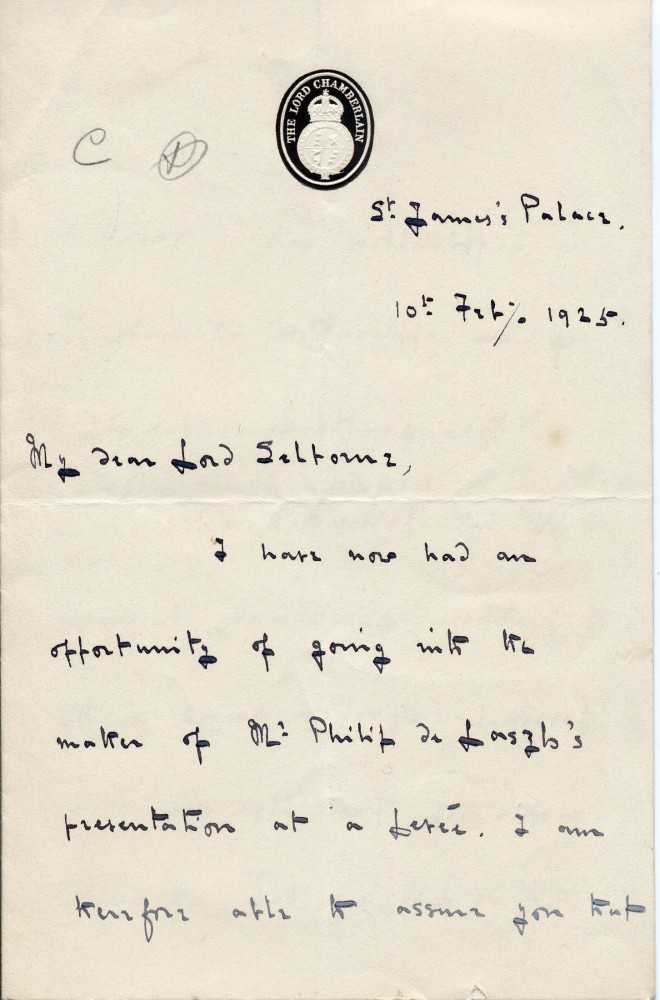 THE LORD CHAMBERLAIN
C D
St. James's Palace.
10th Feb/. 1925.
My dear Lord Selborne,
I have now had an
opportunity of going into the
matter of Mr. Philip de László's
presentation at a Levée. I am
therefore able to assure you that